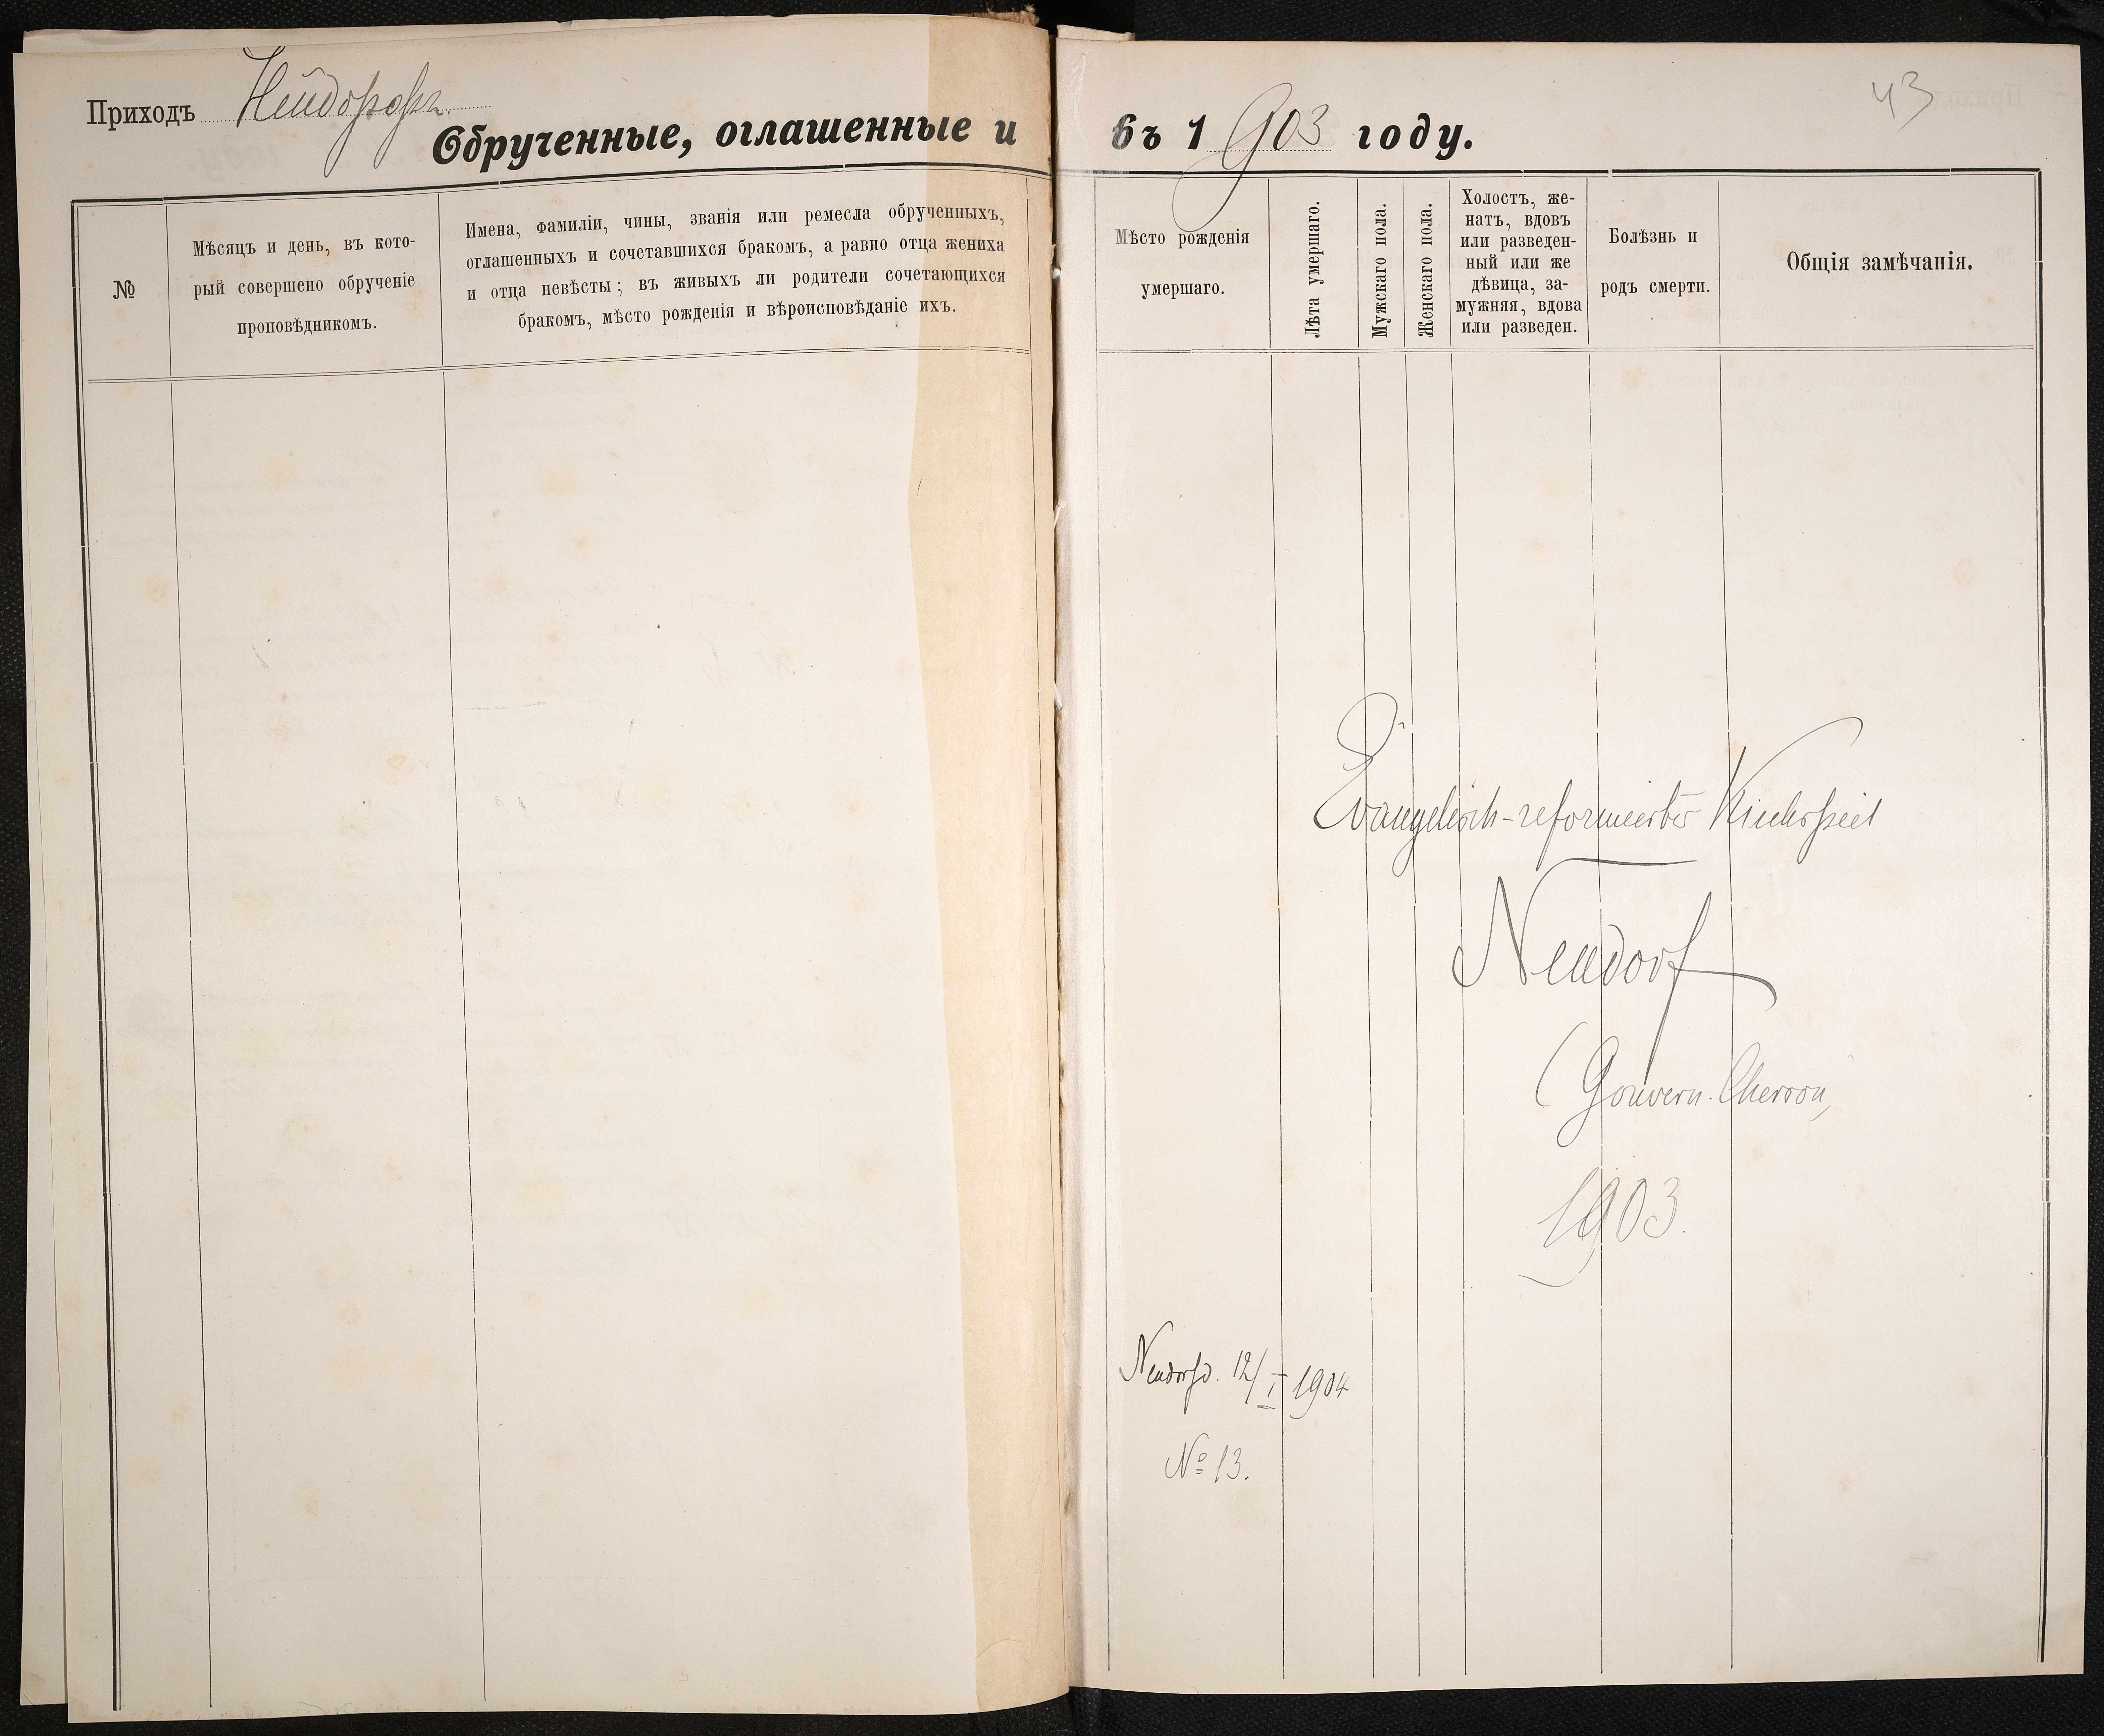 Приходъ Нейдорфъ.
Обрученные, оглашенные и
№
Мѣсяцъ и день, въ кото-
рый совершено обрученіе
проповѣдникомъ.
Имена, фамиліи, чины, званія или ремесла обрученныхъ,
оглашенныхъ и сочетавшихся бракомъ, а равно отца жениха
и отца невѣсты; въ живыхъ ли родители сочетающихся
бракомъ, мѣсто рожденія и вѣроисповѣданіе ихъ.
43
въ 1903 году.
Мѣсто рожденія
умершаго.
Лѣта умершаго.
Мужскаго пола.
Женскаго пола.
Холостъ, же-
натъ, вдовъ
или разведен-
ный или же
дѣвица, за-
мужняя, вдова
или разведен.
Болѣзнь и
родъ смерти.
Общія замѣчанія.
Evangelisch-reformiertes Kirchspiel
Neudorf
(Gouvern. Cherson)
1903.
Neudorf d. 12/I 1904
№ 13.